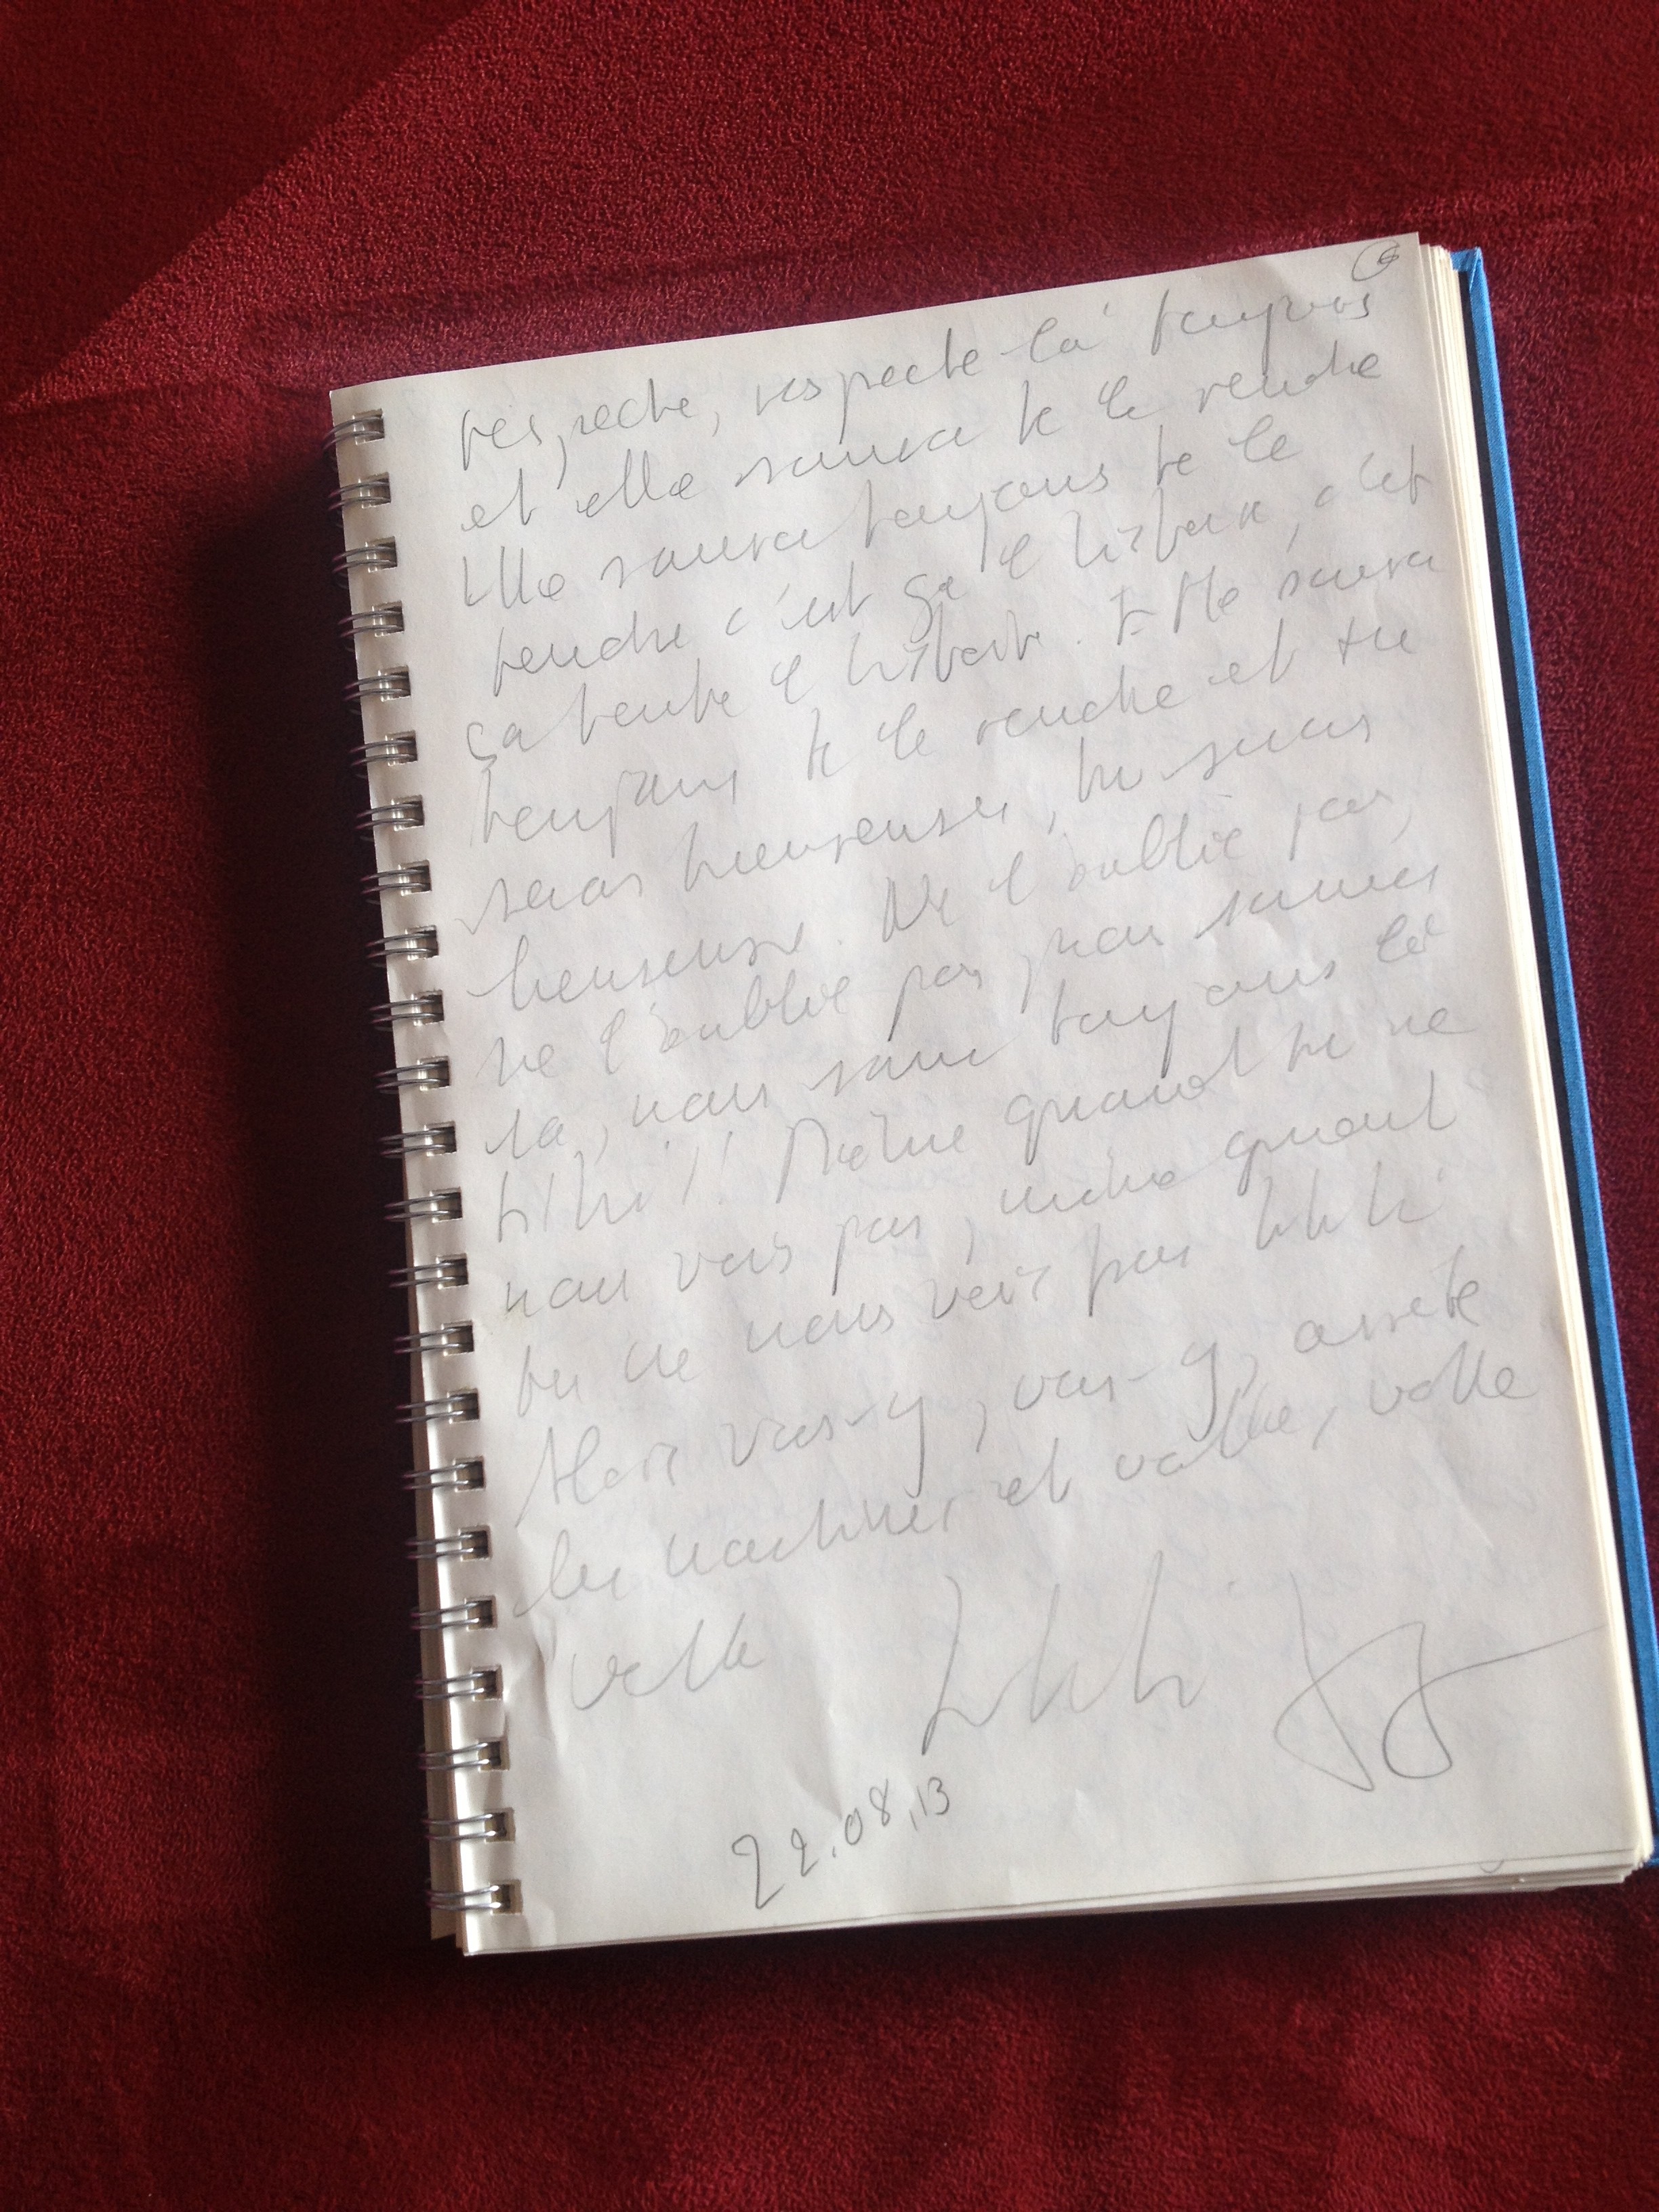 6
respecte, respecte là toujours
et elle saura te le rendre
Elle saura toujours te le
rendre c'est ça l'histoire, c'est
ça toute l'histoire. Elle saura
toujours te le rendre et tu
seras heureuse, tu seras
heureuse. Ne l'oublie pas,
ne l'oublie pas, nous sommes
là, nous sommes toujours là
hihi!! Même quand tu ne
nous vois pas, même quand
tu ne nous vois pas hihihi
Alors vas-y, vas-y, arrête
les machines et valse, valse
valse
22.08.13